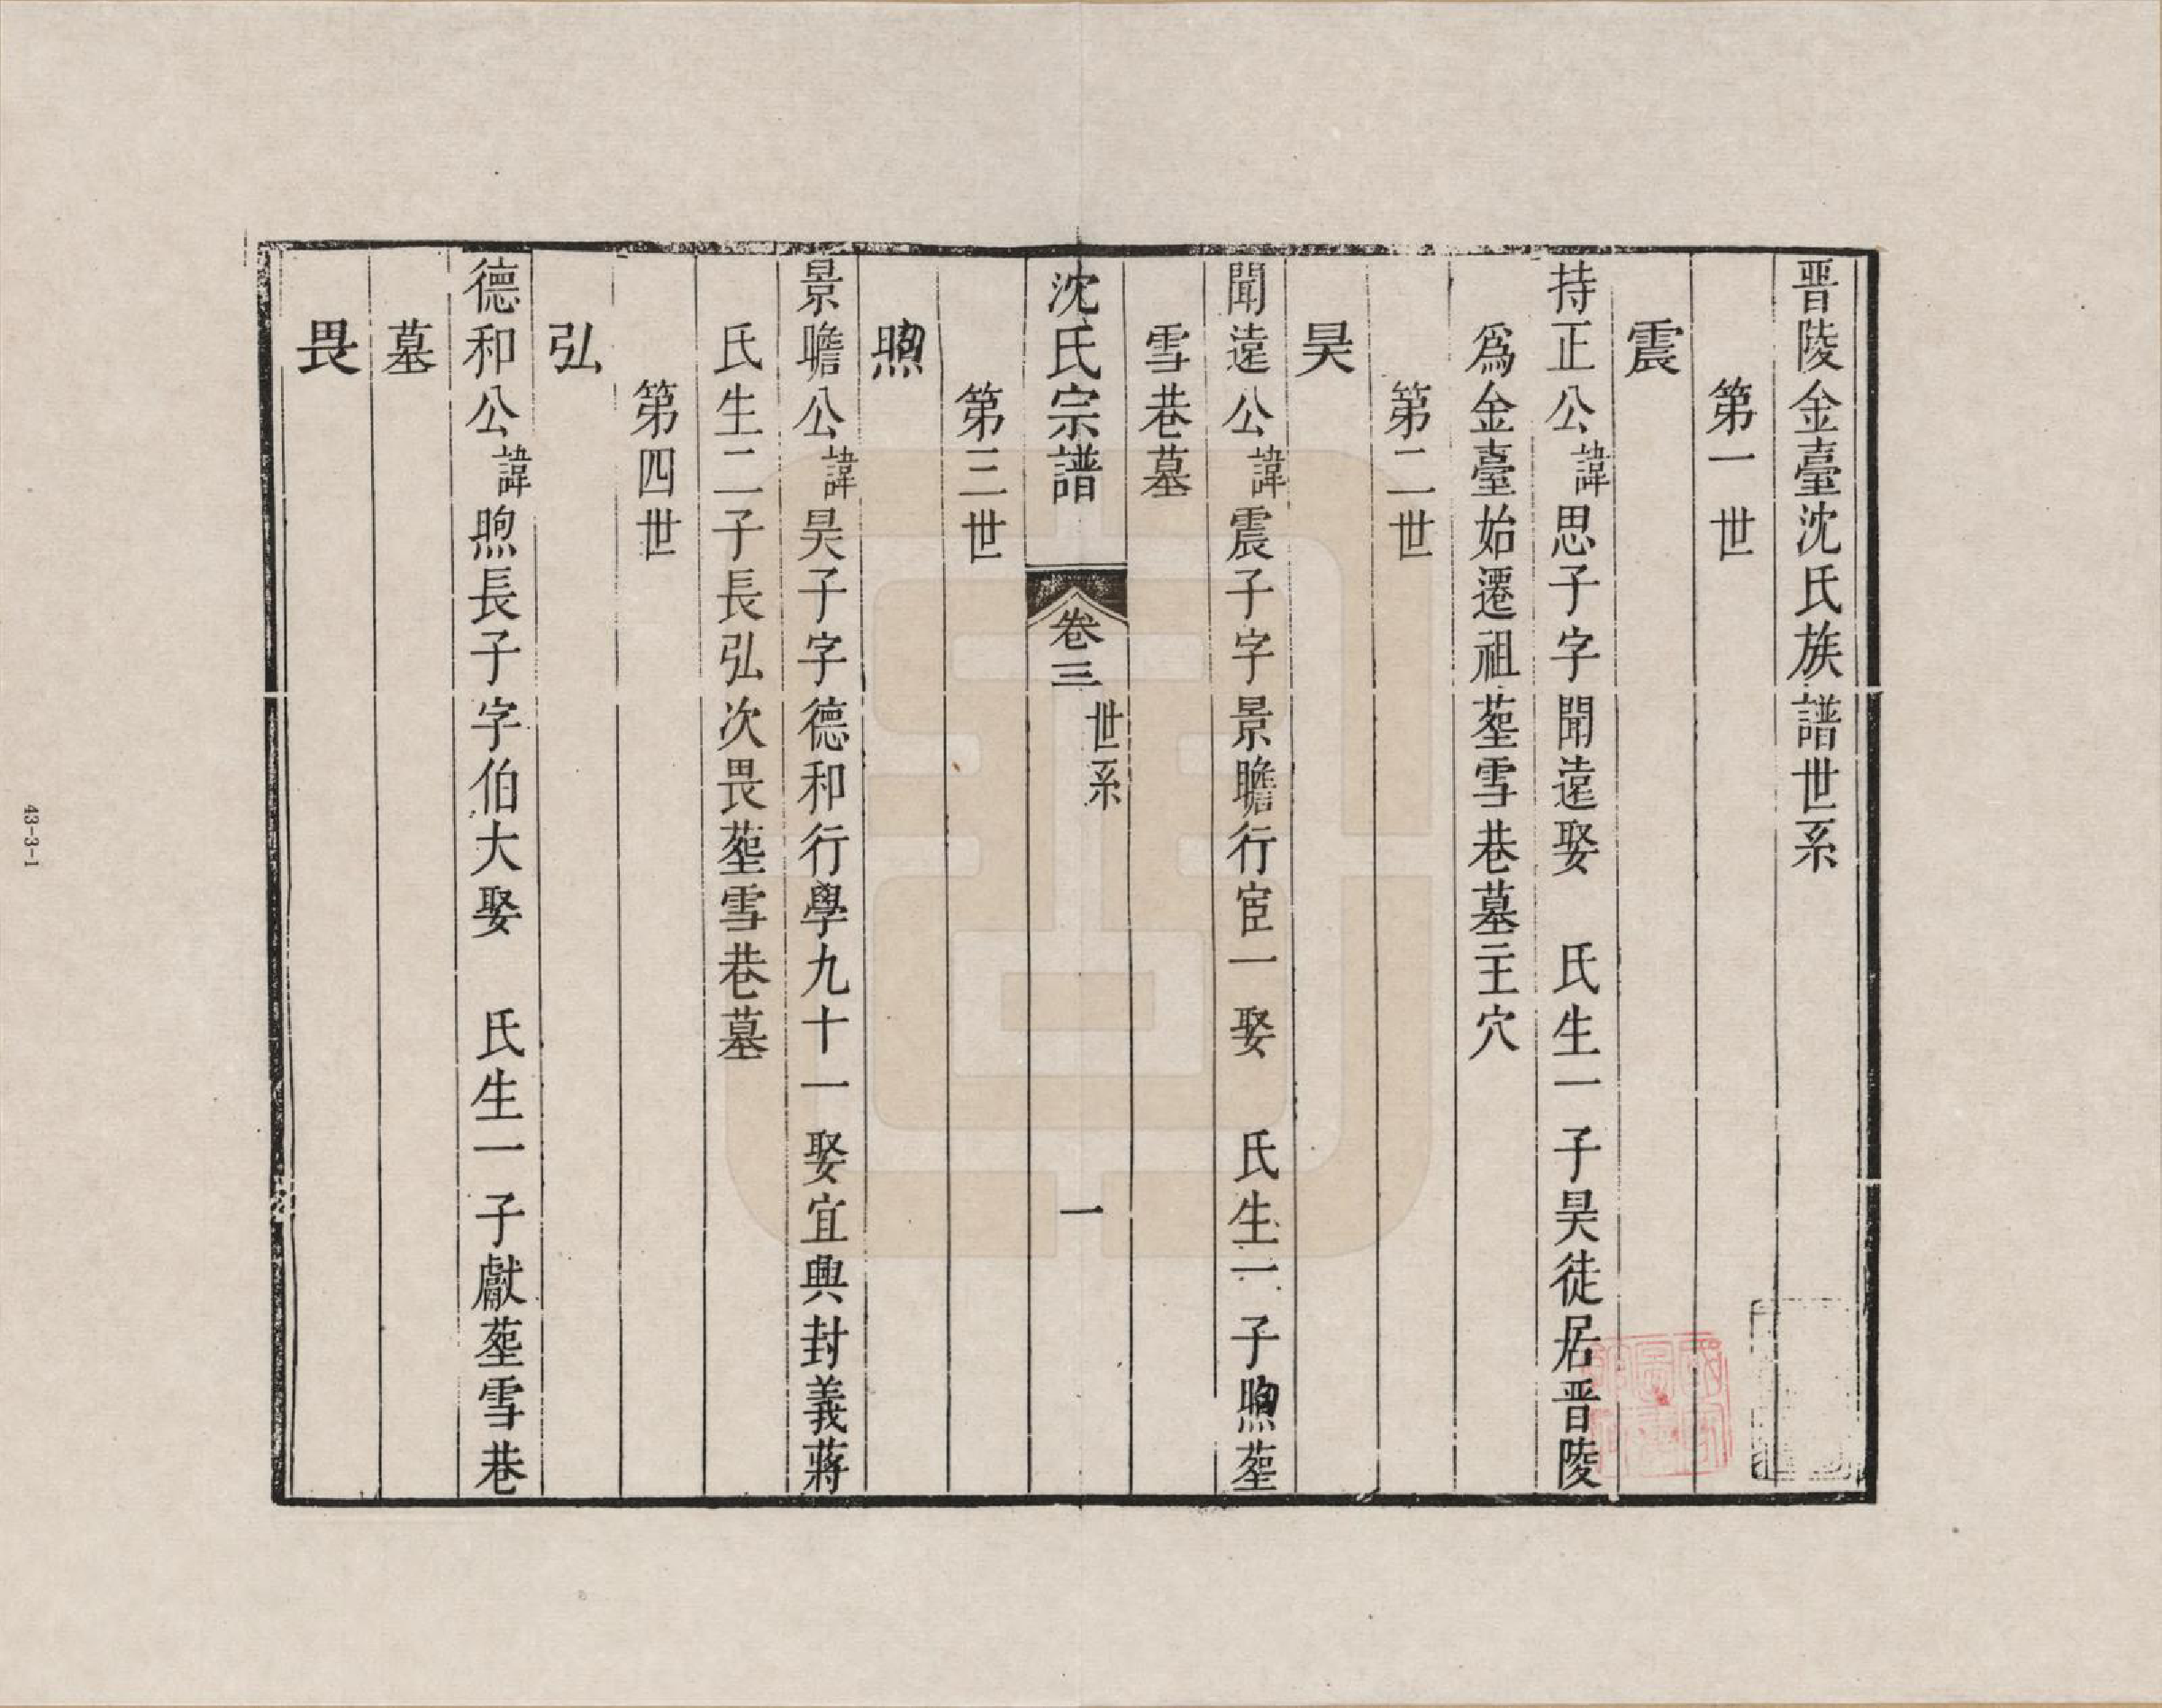 晋陵金臺沈氏族譜世系
第一世
震
持正公諱思子字聞遠娶　氏生一子昊徙居晋陵
爲金臺始遷祖塟雪巷墓主穴
第二世
昊
聞遠公諱震子字景瞻行宦一娶　氏生一子煦塟
雪巷墓
沈氏宗譜　卷三　世系　一
第三世
煦
景瞻公諱昊子字德和行學九十一娶宜興封義蔣
氏生二子長弘次畏塟雪巷墓
第四世
弘
德和公諱煦長子字伯大娶　氏生一子獻塟雪巷
墓
畏
43-3-1